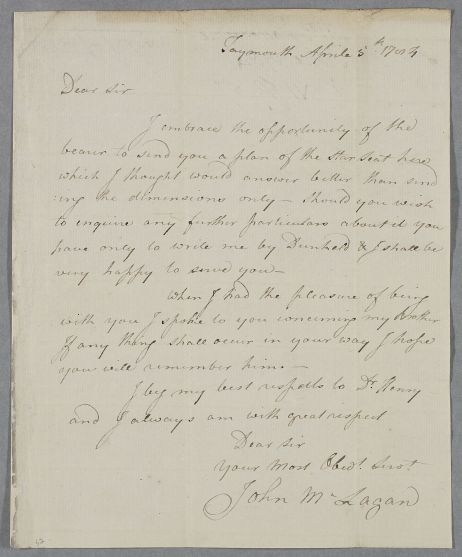 Taymouth Aprile 5th. 1784
Dear Sir
I embrace the opportunity of the
bearer to send you a plan of the Star Seat here
which I thought would answer better than send
:ing the dimensions only – Should you wish
to inquire any further particulars about it you
have only to write me by Dunkeld & I shall be
very happy to serve you –
When I had the pleasure of being
with you I spoke to you concerning my Brother
If any thing shall occur in your way I hope
you will remember him. –
I beg my best respects to Dr. Henry
and I always am with great respect
Dear Sir
Your Most Obedt. Servt
John Mc Lagan